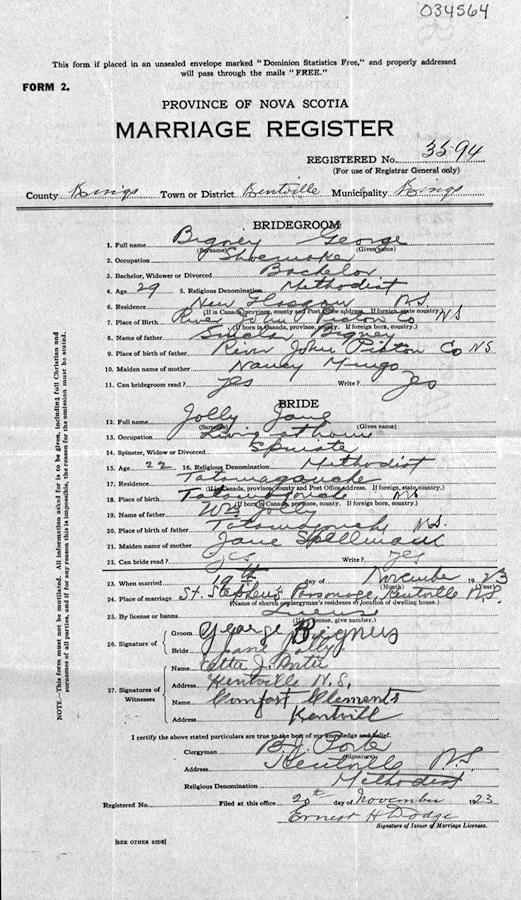 034564
This form if placed in an unsealed envelope marked "Dominion Statistics Free," and properly addressed
will pass through the mails "FREE."
FORM 2.
PROVINCE OF NOVA SCOTIA
MARRIAGE REGISTER
REGISTERED No. 3594
(For use of Registrar General only)
County Kings Town or District Kentville Municipality Kings
BRIDEGROOM
1. Full name Bigney George
(Surname) (Given name)
2. Occupation Shoemaker
3. Bachelor, Widower or Divorced Bachelor
4. Age 29 5. Religious Denomination Methodist
6. Residence New Glasgow N.S.
(If in Canada, province, county and Post Office address. If foreign, state country.)
7. Place of Birth River John Pictou Co NS
(If born in Canada, province, county. If foreign born, country.)
8. Name of father Sinclair Bigney
9. Place of birth of father River John Pictou Co NS
10. Maiden name of mother Nancy Mingo
11. Can bridegroom read? yes Write? yes
BRIDE
12. Full name Jolly Jane
(Surname) (Given name)
13. Occupation Living at home
14. Spinster, Widow or Divorced Spinster
15. Age 22 16. Religious Denomination Methodist
17. Residence Tatamagouche
(If in Canada, province, county and Post Office Address. If foreign, state country.)
18. Place of birth Tatamagouche NS
(If born in Canada, province, county. If foreign born, country.)
19. Name of father Wm Jolly
20. Place of birth of father Tatamagouche N.S.
21. Maiden name of mother Jane Spellman
22. Can bride read? yes Write? yes
23. When married 19th day of November 1923
(Month) (Year)
24. Place of marriage St. Stephen's Parsonage, Kentville N.S.
(Name of church or clergyman's residence or location of dwelling house.)
25. By license or banns License
(If license, give number.)
26. Signature of
Groom George Bigney
Bride Jane Jolly
27. Signatures of Witnesses
Name J.
Address Kentville N.S.
Name Comfort Clements
Address Kentvill
I certify the above stated particulars are true to the best of my knowledge and belief.
Clergyman B. J. Porter
(Signature)
Address Kentville N.S
Religious Denomination Methodist
Registered No. Filed at this office 20th day of November 1923
Ernest H Dodge
Signature of Issuer of Marriage Licenses.
[SEE OTHER SIDE]
NOTE.—This form must not be mutilated. All information asked for is to be given, including full Christian and
surnames of all parties, and if for any reason this is impossible, the reason for the omission must be stated.